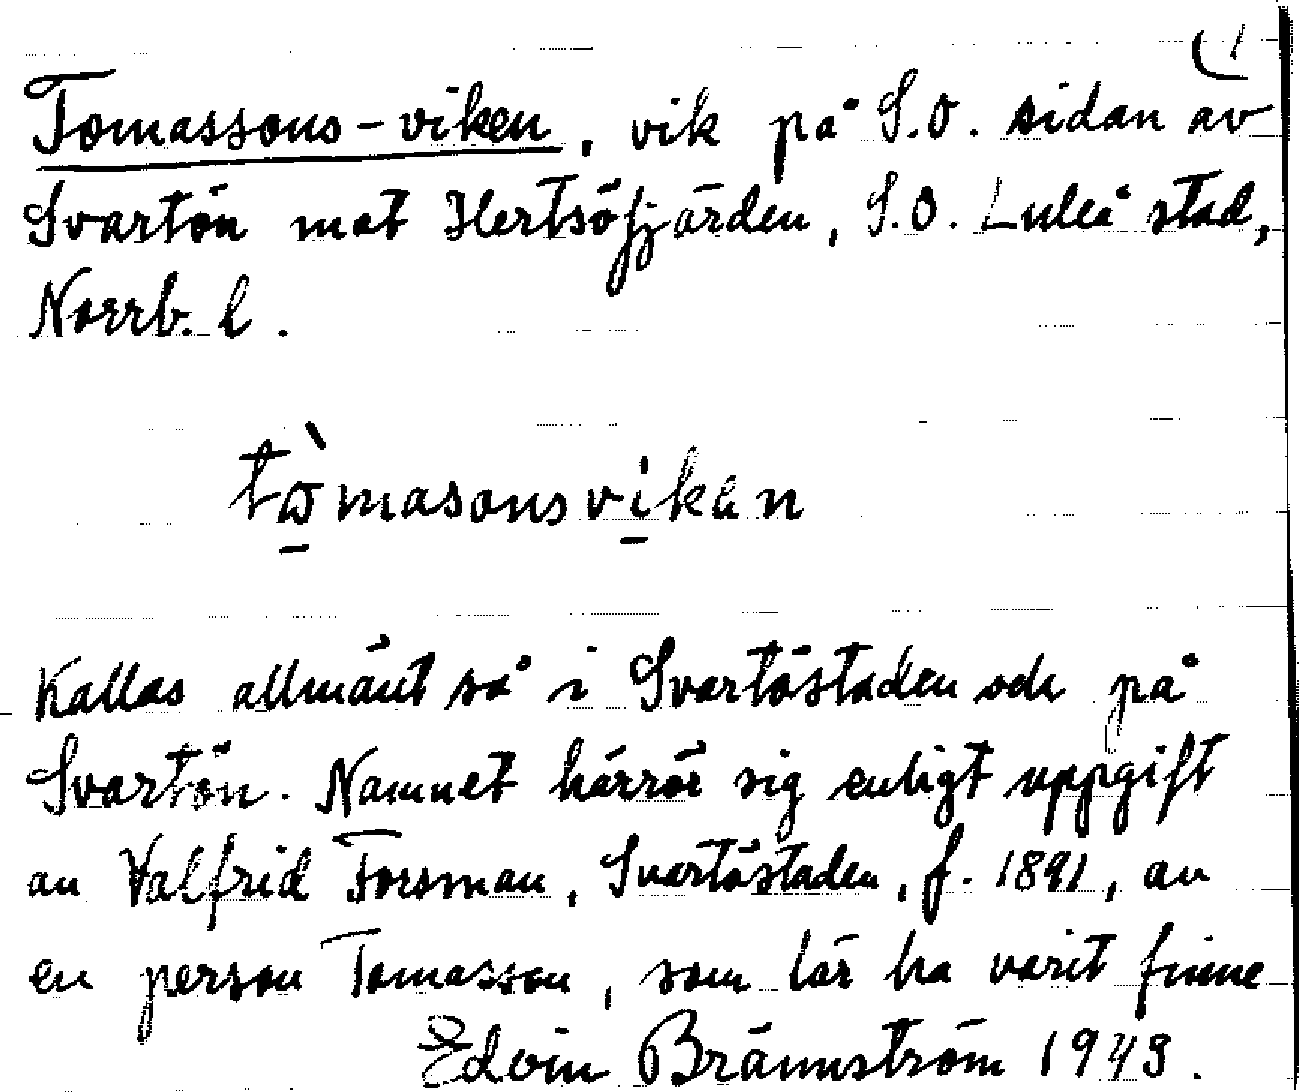 (1
Tomassons-viken, vik på S.O. sidan av
Svartön mot Hertsöfjärden, S.O. Luleå stad,
Norrb. l.
tò̱masonsvi̱kən
Kallas allmänt så i Svartöstaden och på
Svartön. Namnet härrör sig enligt uppgift
av Valfrid Forsman, Svartöstaden, f. 1891, av
en person Tomasson, som lär ha varit finne
Edvin Brännström 1943.